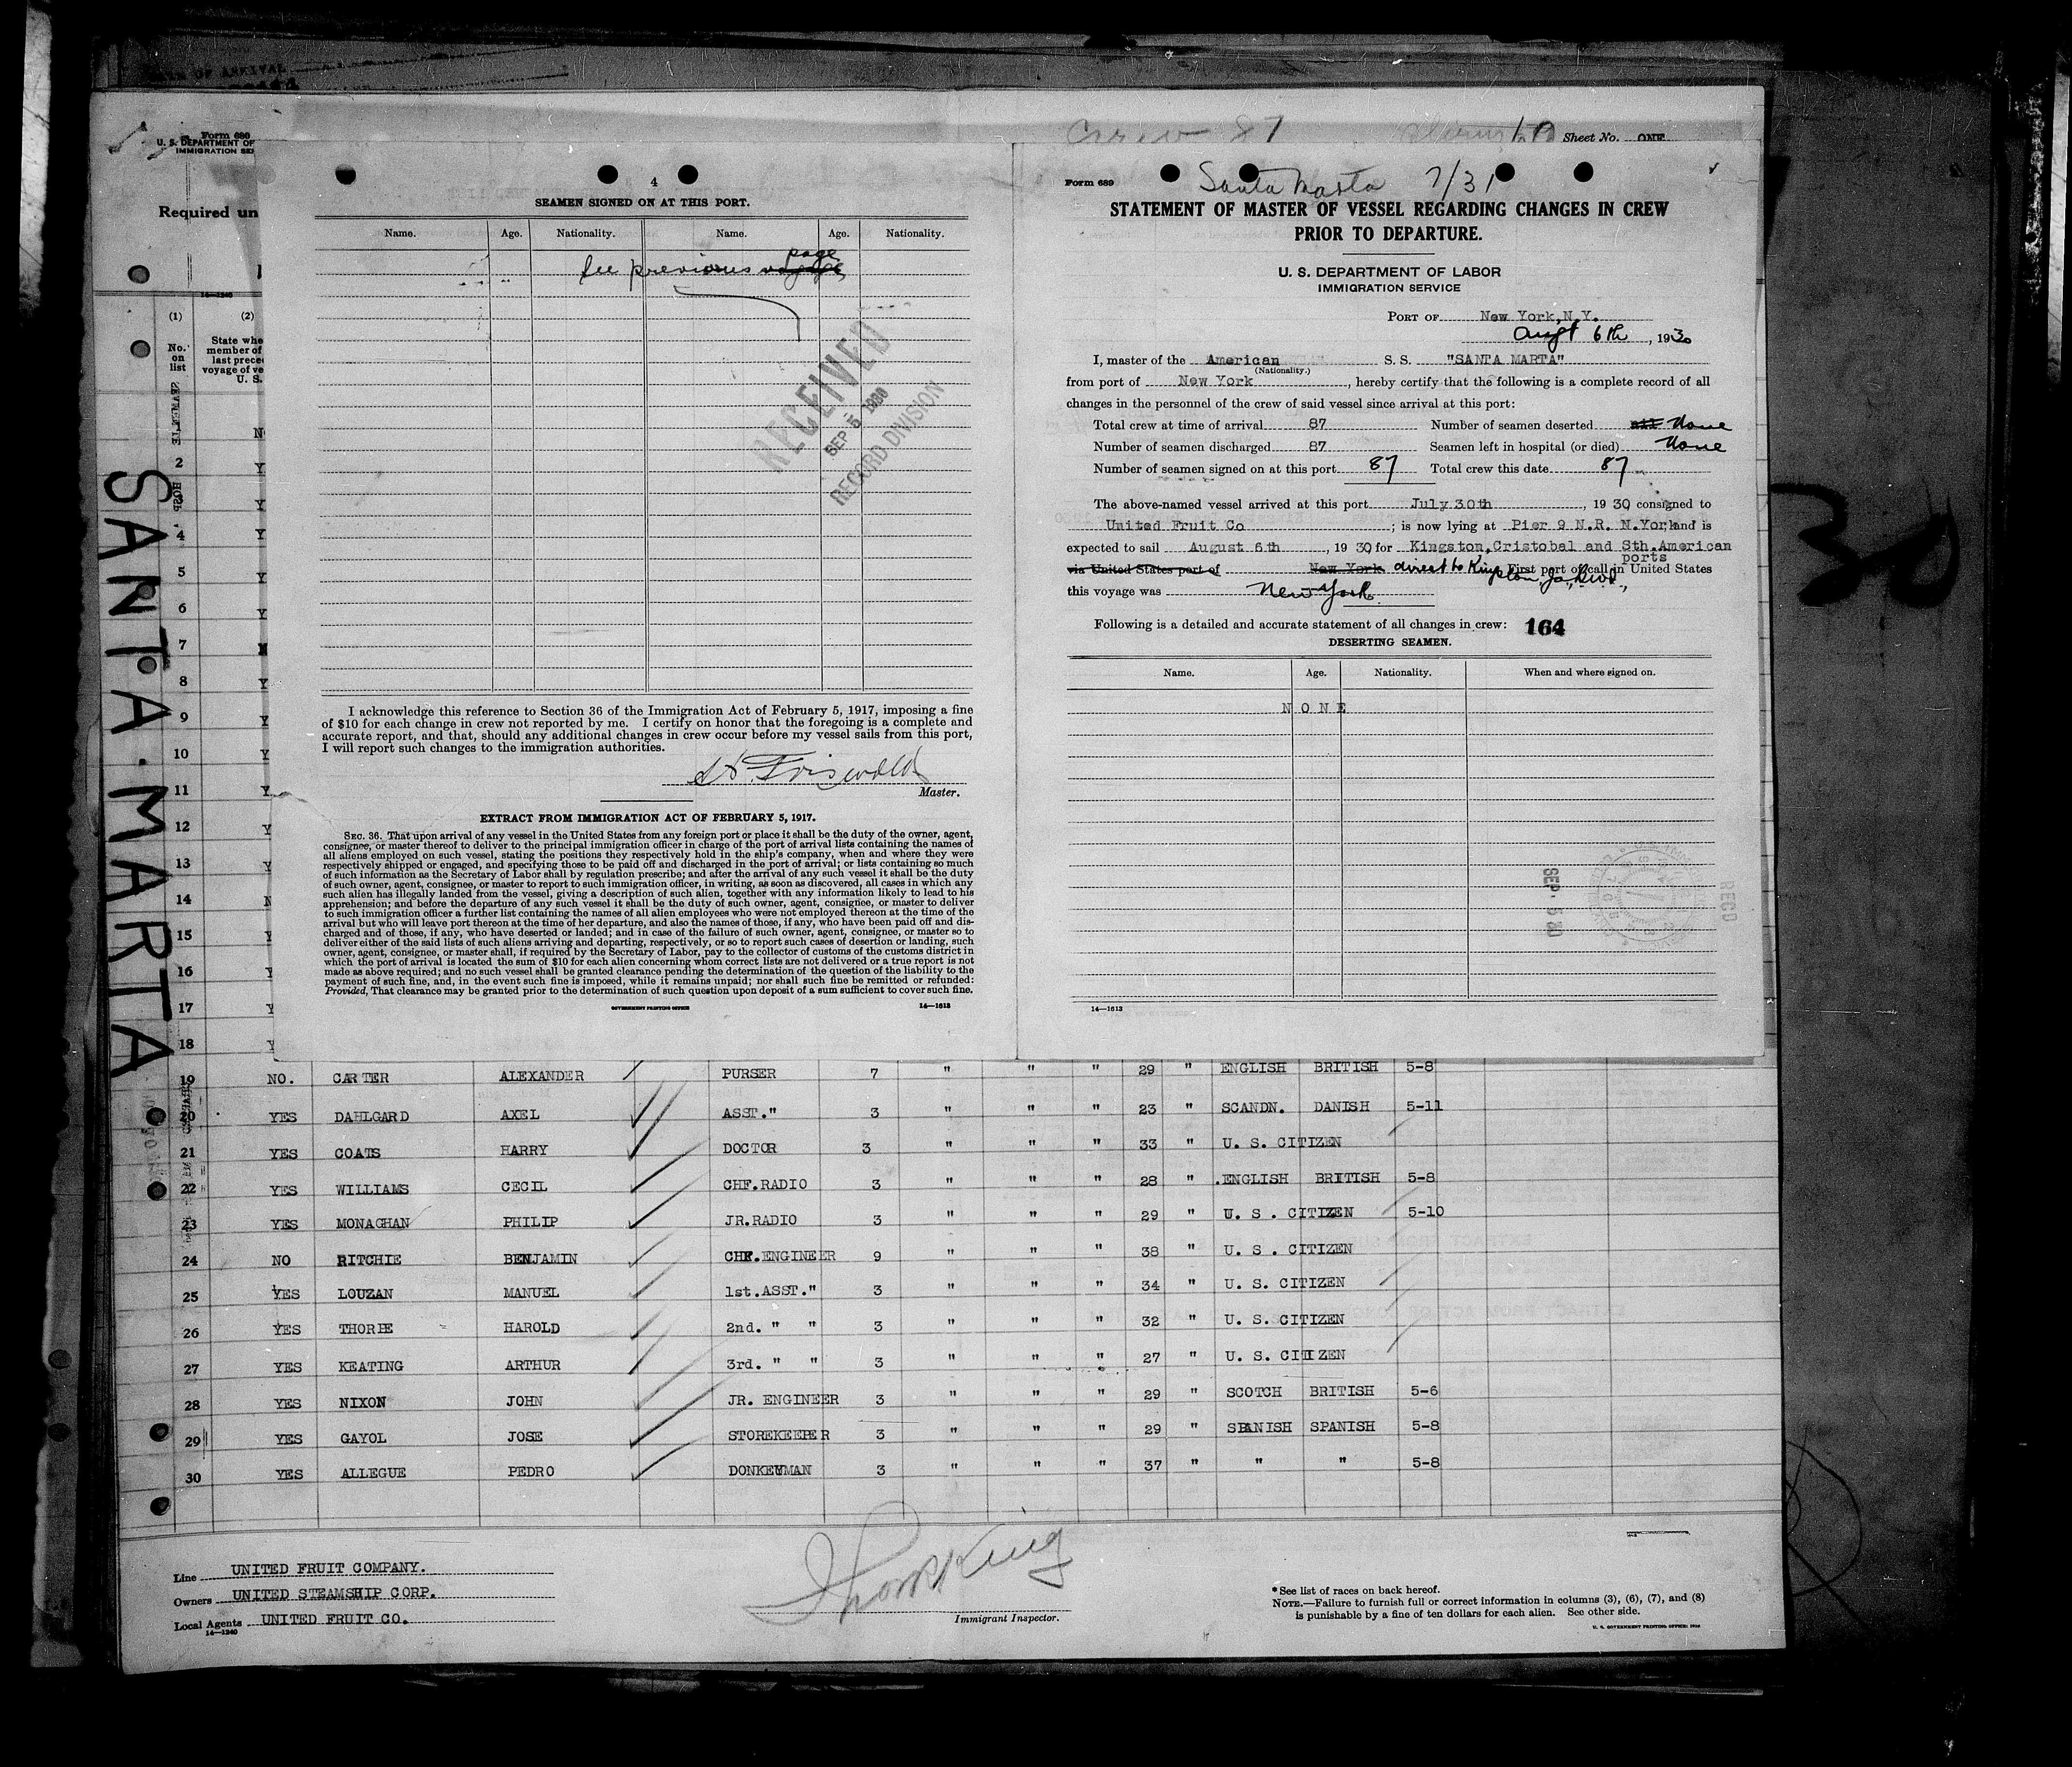 Crew 87
Sheet No. ONE
Form 680
U. S. DEPARTMENT OF
IMMIGRATION SE
Required un
14—1240
(1)
(2)
No. on list
State whe
member of
last prece
voyage of ve
U. S.
SANTA MARTA
2 Y
Y
4 Y
5 Y
6 Y
7
8 Y
9 Y
10 Y
11 Y
12 Y
13 Y
14 N
15 Y
16 Y
17 Y
18 Y
4
SEAMEN SIGNED ON AT THIS PORT.
Name. Age. Nationality. Name. Age. Nationality.
page
See previous
RECEIVED
SEP 5 1930
RECORD DIVISION
I acknowledge this reference to Section 36 of the Immigration Act of February 5, 1917, imposing a fine
of $10 for each change in crew not reported by me. I certify on honor that the foregoing is a complete and
accurate report, and that, should any additional changes in crew occur before my vessel sails from this port,
I will report such changes to the immigration authorities.
Master.
EXTRACT FROM IMMIGRATION ACT OF FEBRUARY 5, 1917.
SEC. 36. That upon arrival of any vessel in the United States from any foreign port or place it shall be the duty of the owner, agent,
consignee, or master thereof to deliver to the principal immigration officer in charge of the port of arrival lists containing the names of
all aliens employed on such vessel, stating the positions they respectively hold in the ship's company, when and where they were
respectively shipped or engaged, and specifying those to be paid off and discharged in the port of arrival; or lists containing so much
of such information as the Secretary of Labor shall by regulation prescribe; and after the arrival of any such vessel it shall be the duty
of such owner, agent, consignee, or master to report to such immigration officer, in writing, as soon as discovered, all cases in which any
such alien has illegally landed from the vessel, giving a description of such alien, together with any information likely to lead to his
apprehension; and before the departure of any such vessel it shall be the duty of such owner, agent, consignee, or master to deliver
to such immigration officer a further list containing the names of all alien employees who were not employed thereon at the time of the
arrival but who will leave port thereon at the time of her departure, and also the names of those, if any, who have been paid off and dis-
charged and of those, if any, who have deserted or landed; and in case of the failure of such owner, agent, consignee, or master so to
deliver either of the said lists of such aliens arriving and departing, respectively, or so to report such cases of desertion or landing, such
owner, agent, consignee, or master shall, if required by the Secretary of Labor, pay to the collector of customs of the customs district in
which the port of arrival is located the sum of $10 for each alien concerning whom correct lists are not delivered or a true report is not
made as above required; and no such vessel shall be granted clearance pending the determination of the question of the liability to the
payment of such fine, and, in the event such fine is imposed, while it remains unpaid; nor shall such fine be remitted or refunded:
Provided, That clearance may be granted prior to the determination of such question upon deposit of a sum sufficient to cover such fine.
GOVERNMENT PRINTING OFFICE 14—1613
Form 689
Santa Marta 7/31
STATEMENT OF MASTER OF VESSEL REGARDING CHANGES IN CREW
PRIOR TO DEPARTURE.
U. S. DEPARTMENT OF LABOR
IMMIGRATION SERVICE
PORT OF New York,N.Y.
Augt 6th, 1930
I, master of the American S. S. "SANTA MARTA"
(Nationality.)
from port of New York, hereby certify that the following is a complete record of all
changes in the personnel of the crew of said vessel since arrival at this port:
Total crew at time of arrival 87 Number of seamen deserted None
Number of seamen discharged 87 Seamen left in hospital (or died) None
Number of seamen signed on at this port 87 Total crew this date 87
The above-named vessel arrived at this port July 30th, 1930 consigned to
United Fruit Co; is now lying at Pier 9 N.R. N.York and is
expected to sail August 6th, 1930 for Kingston,Cristobal and Sth.American
ports
via United States port of New York direct to Kingston, Ja, First port of call in United States
this voyage was New York
Following is a detailed and accurate statement of all changes in crew: 164
DESERTING SEAMEN.
Name. Age. Nationality. When and where signed on.
NONE
SEP. 5 30
REC'D
14—1613
30
19 NO. CARTER ALEXANDER PURSER 7 " " " 29 " ENGLISH BRITISH 5-8
20 YES DAHLGARD AXEL ASST." 3 " " " 23 " SCANDN. DANISH 5-11
21 YES COATS HARRY DOCTOR 3 " " " 33 " U. S. CITIZEN
22 YES WILLIAMS CECIL CHF.RADIO 3 " " " 28 " ENGLISH BRITISH 5-8
23 YES MONAGHAN PHILIP JR.RADIO 3 " " " 29 " U. S . CITIZEN 5-10
24 NO RITCHIE BENJAMIN CHF.ENGINEER 9 " " " 38 " U. S . CITIZEN
25 YES LOUZAN MANUEL 1st.ASST." 3 " " " 34 " U. S. CITIZEN
26 YES THORPE HAROLD 2nd. " " 3 " " " 32 " U. S. CITIZEN
27 YES KEATING ARTHUR 3rd. " " 3 " " " 27 " U. S. CITIZEN
28 YES NIXON JOHN JR. ENGINEER 3 " " " 29 " SCOTCH BRITISH 5-6
29 YES GAYOL JOSE STOREKEEPER 3 " " " 29 " SPANISH SPANISH 5-8
30 YES ALLEGUE PEDRO DONKEYMAN 3 " " " 37 " " " 5-8
Line UNITED FRUIT COMPANY.
Owners UNITED STEAMSHIP CORP.
Local Agents UNITED FRUIT CO.
14—1240
Immigrant Inspector.
*See list of races on back hereof.
NOTE.—Failure to furnish full or correct information in columns (3), (6), (7), and (8)
is punishable by a fine of ten dollars for each alien. See other side.